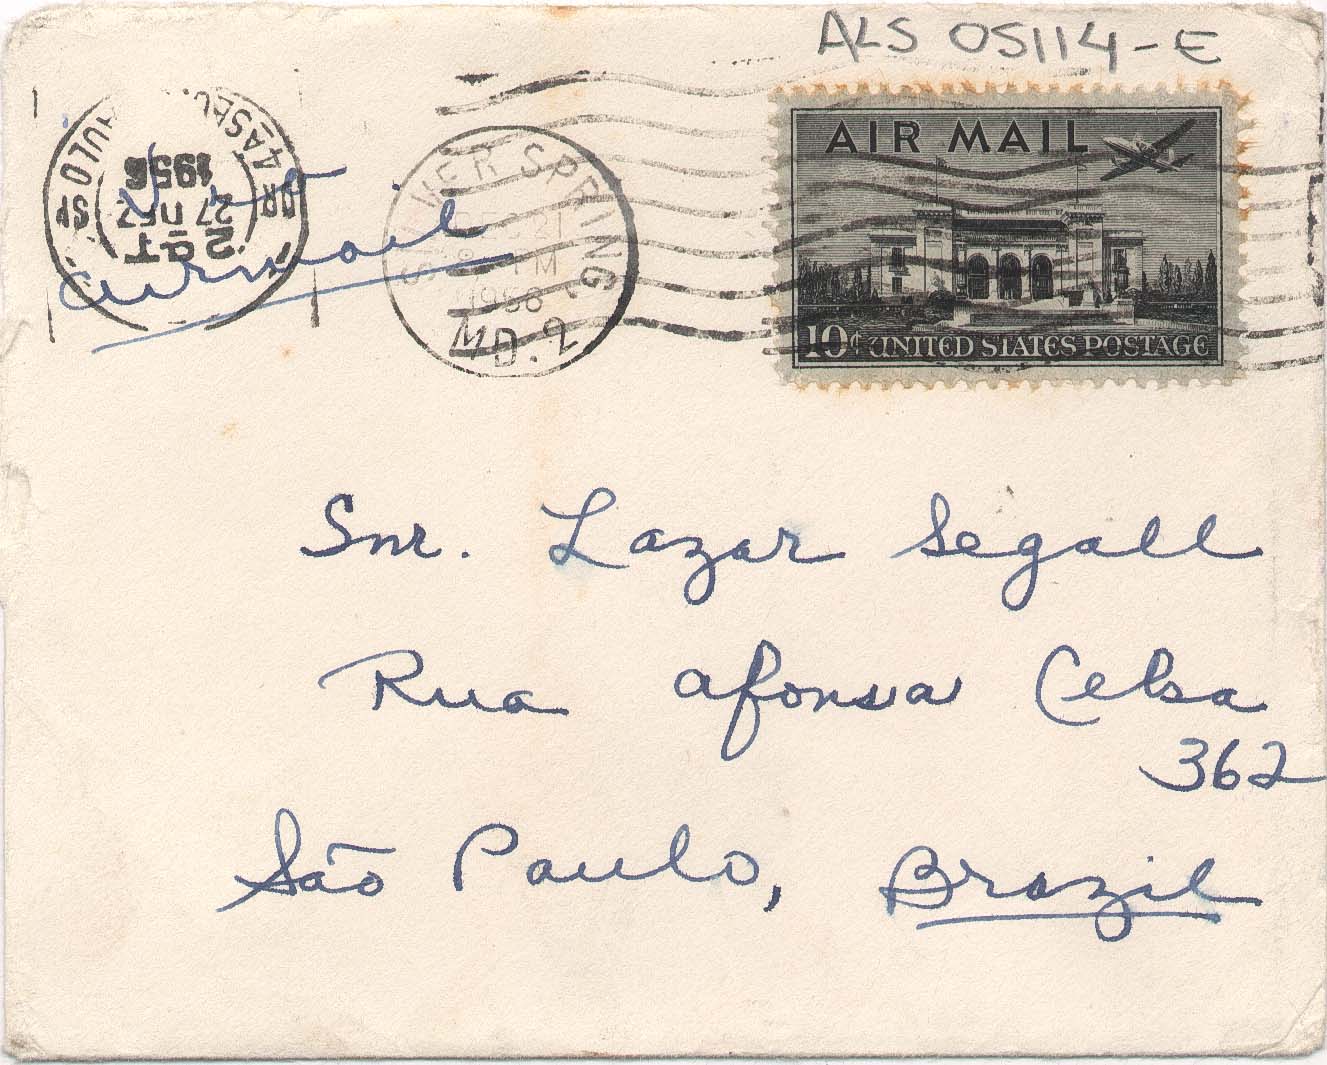 ALS 05114-E
AIR MAIL
10¢ UNITED STATES POSTAGE
SILVER SPRING
DEC 21
PM
1956
MD. 2
27 DEZ
1956
airmail
Snr. Lazar Segall
Rua Afonsa Celsa
362
São Paulo, Brazil